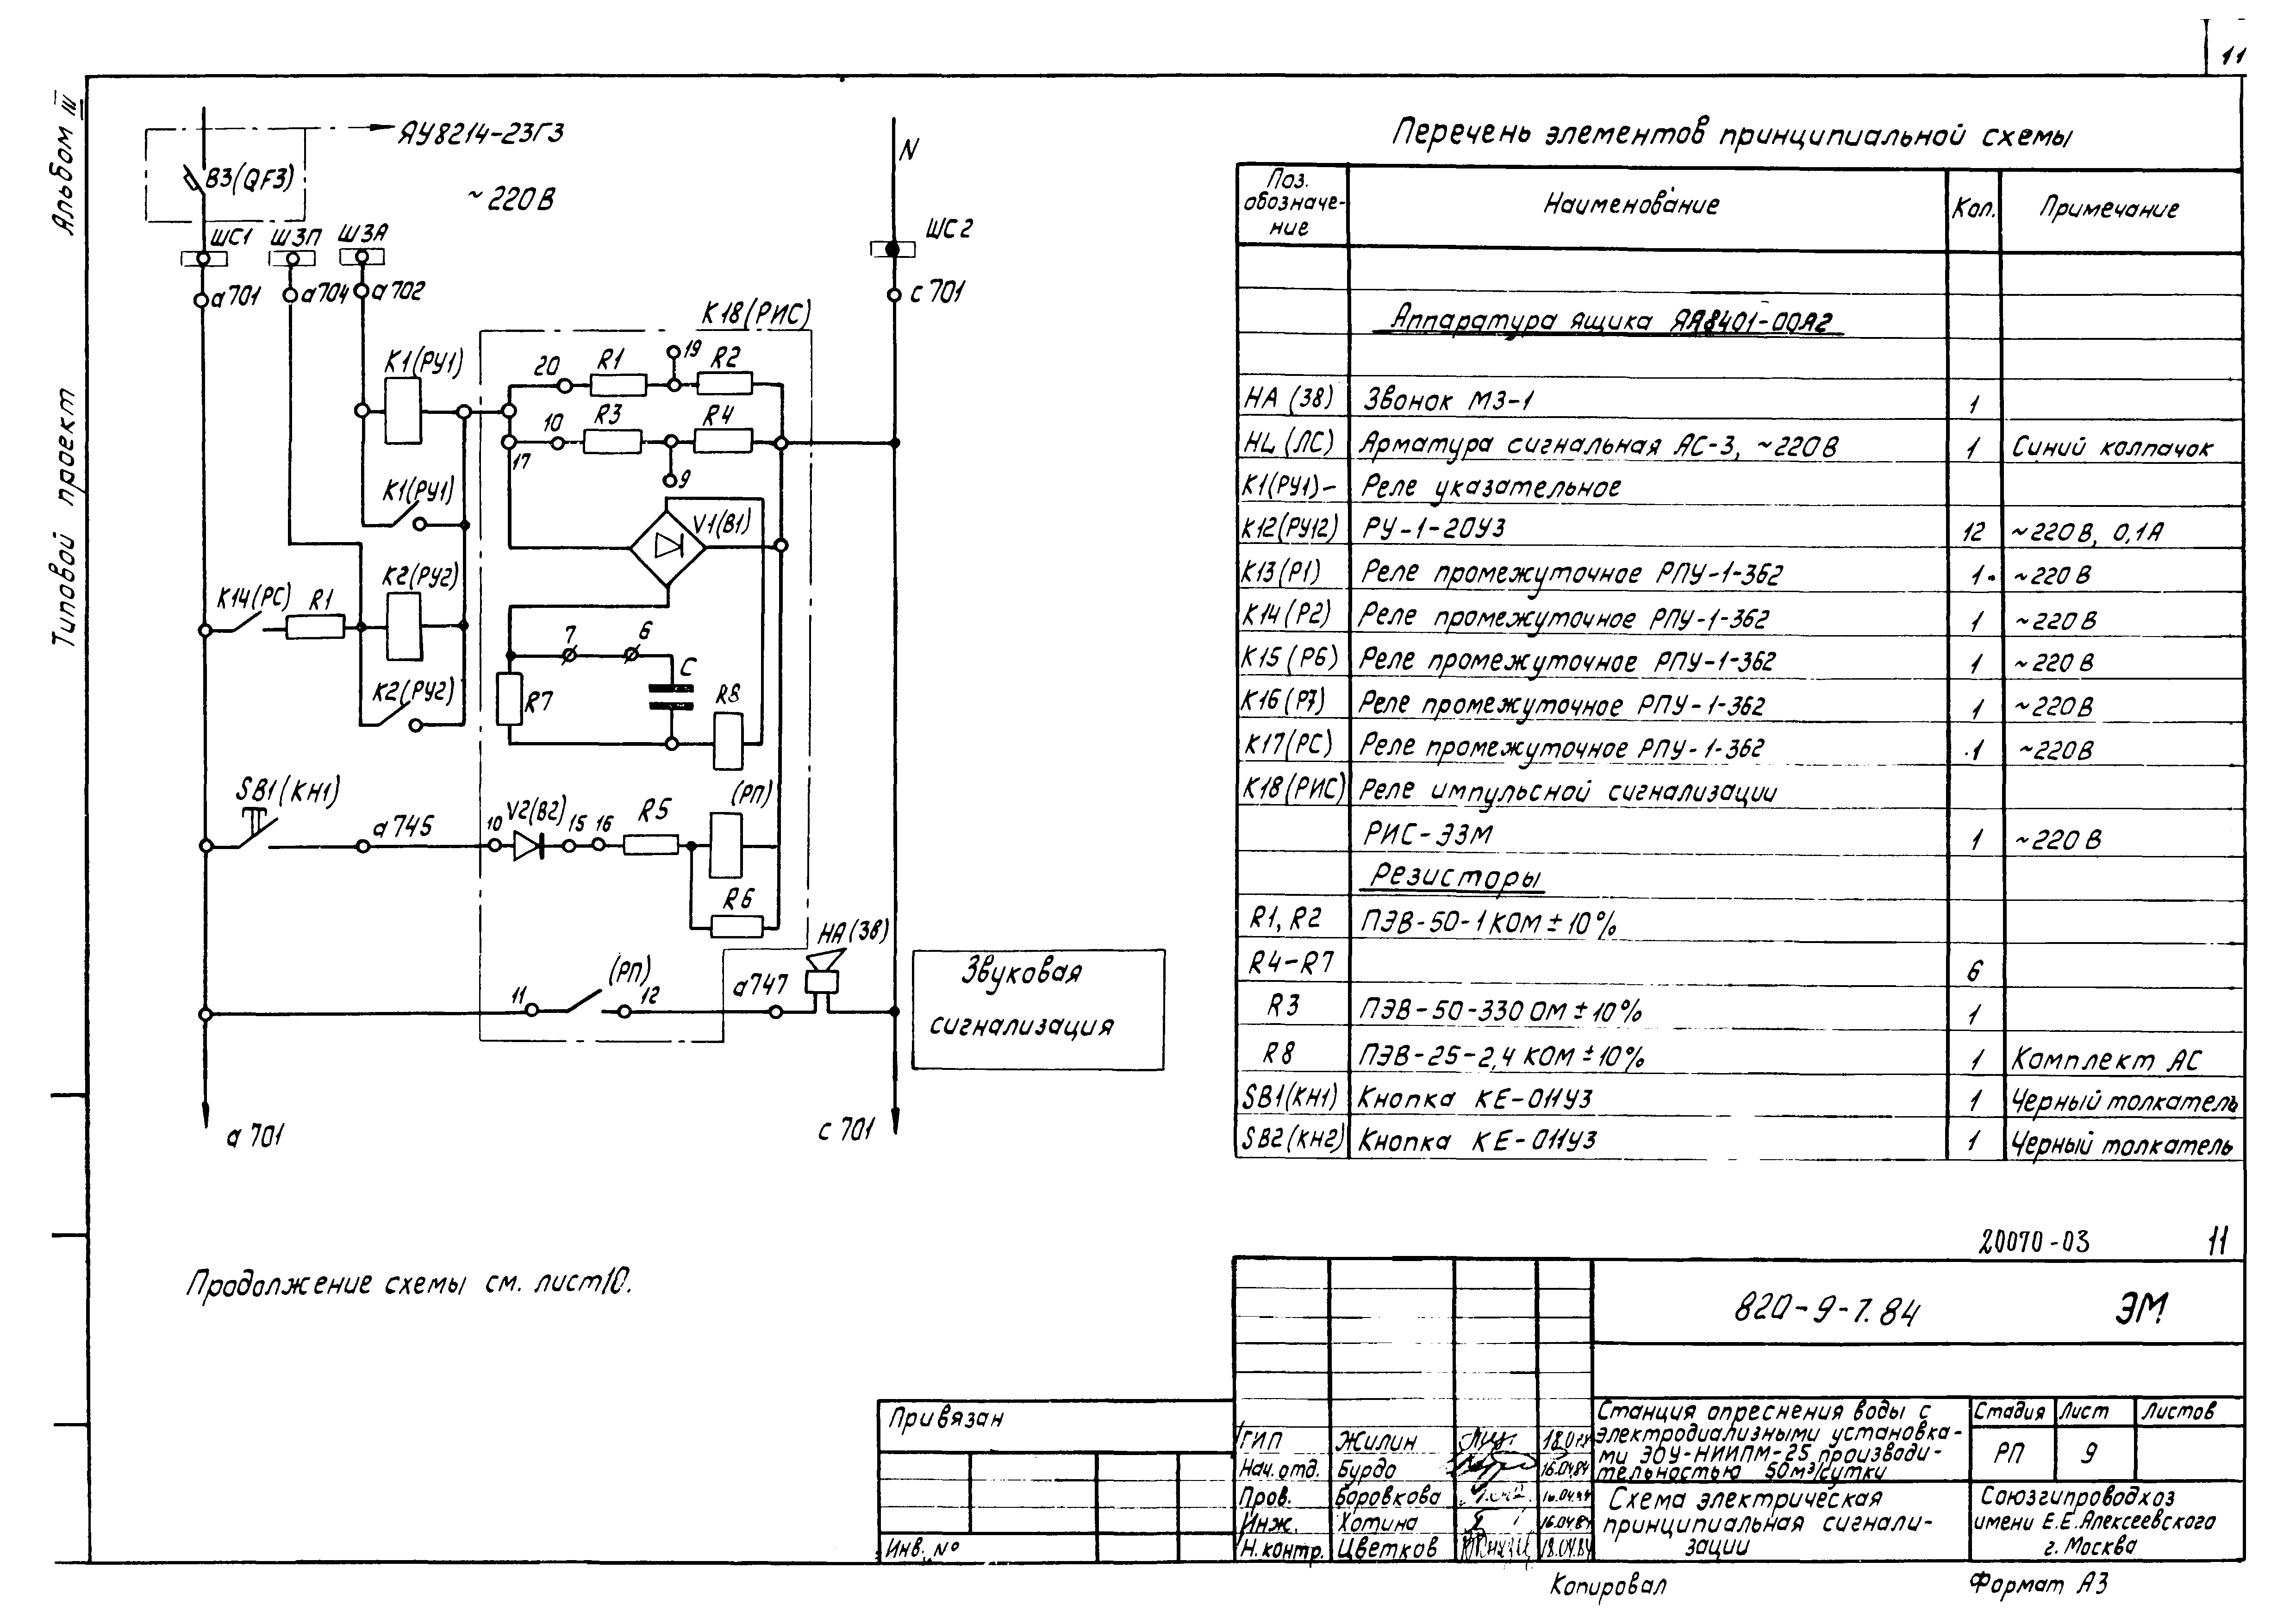 11
Альбом III
Типовой проект
ЯУ8214-23Г3
В3(QF3)
~220В
N
ШС1
ШЗП
ШЗА
ШС2
а701
а704
а702
с701
К18(РИС)
К1(РУ1)
20
R1
19
R2
10
R3
R4
17
9
К1(РУ1)
V1(В1)
К14(РС)
R1
К2(РУ2)
7
6
С
R7
R8
К2(РУ2)
SB1(КН1)
а745
10
V2(В2)
15
16
R5
(РП)
R6
НА(Зв)
11
(РП)
12
а747
Звуковая
сигнализация
а701
с701
Продолжение схемы см. лист10.
Перечень элементов принципиальной схемы
Поз. обозначе-ние Наименование Кол. Примечание
Аппаратура ящика ЯА8401-00А2
НА (Зв) Звонок МЗ-1 1
HL (ЛС) Арматура сигнальная АС-3, ~220В 1 Синий колпачок
К1(РУ1)- Реле указательное
К12(РУ12) РУ-1-20У3 12 ~220В, 0,1А
К13(Р1) Реле промежуточное РПУ-1-362 1 ~220В
К14(Р2) Реле промежуточное РПУ-1-362 1 ~220В
К15(Р6) Реле промежуточное РПУ-1-362 1 ~220В
К16(Р7) Реле промежуточное РПУ-1-362 1 ~220В
К17(РС) Реле промежуточное РПУ-1-362 1 ~220В
К18(РИС) Реле импульсной сигнализации
РИС-ЭЗМ 1 ~220В
Резисторы
R1, R2 ПЭВ-50-1 КОМ ± 10%
R4-R7 6
R3 ПЭВ-50-330 ОМ ± 10% 1
R8 ПЭВ-25-2,4 КОМ ± 10% 1 Комплект АС
SB1(КН1) Кнопка КЕ-011У3 1 Черный толкатель
SB2(КН2) Кнопка КЕ-011У3 1 Черный толкатель
20070-03 11
820-9-7.84 ЭМ
Привязан
Инв. №
ГИП Жилин
Нач. отд. Бурдо 16.04.84
Пров. Боровкова 16.04.84
Инж. Хотина 16.04.84
Н.контр. Цветков 18.04.84
Станция опреснения воды с
электродиализными установка-
ми ЭОУ-НИИПМ-25 производи-
тельностью 50м³/сутки
Стадия Лист Листов
РП 9
Схема электрическая
принципиальная сигнали-
зации
Союзгипроводхоз
имени Е.Е.Алексеевского
г. Москва
Копировал
Формат А3